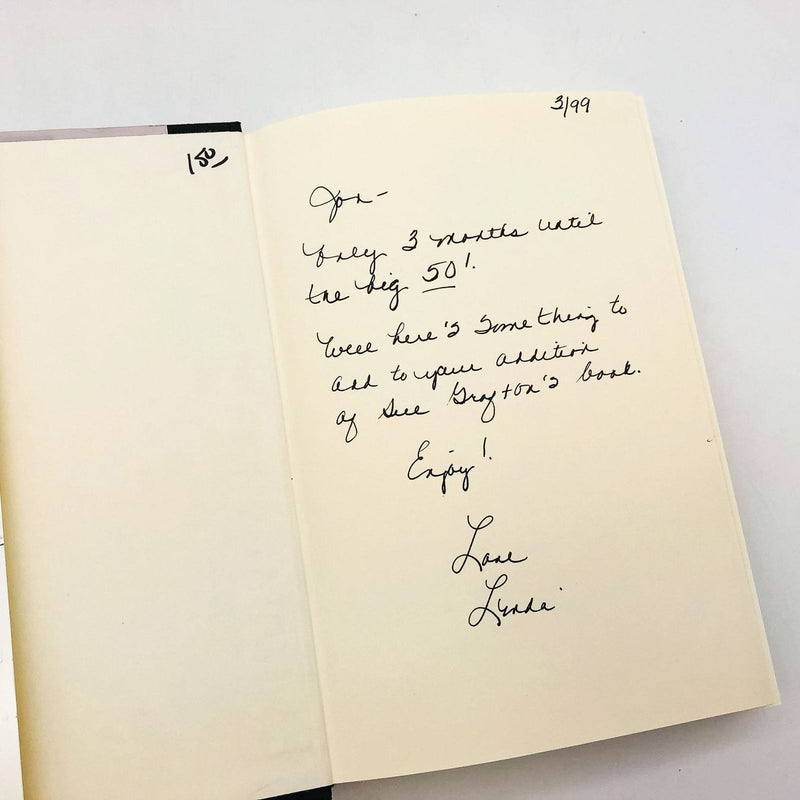 150
3/99
Jon-
Only 3 months until
the big 50!
Well here's something to
add to your addition
of Sue Grafton's book.
Enjoy!
Love
Lynda